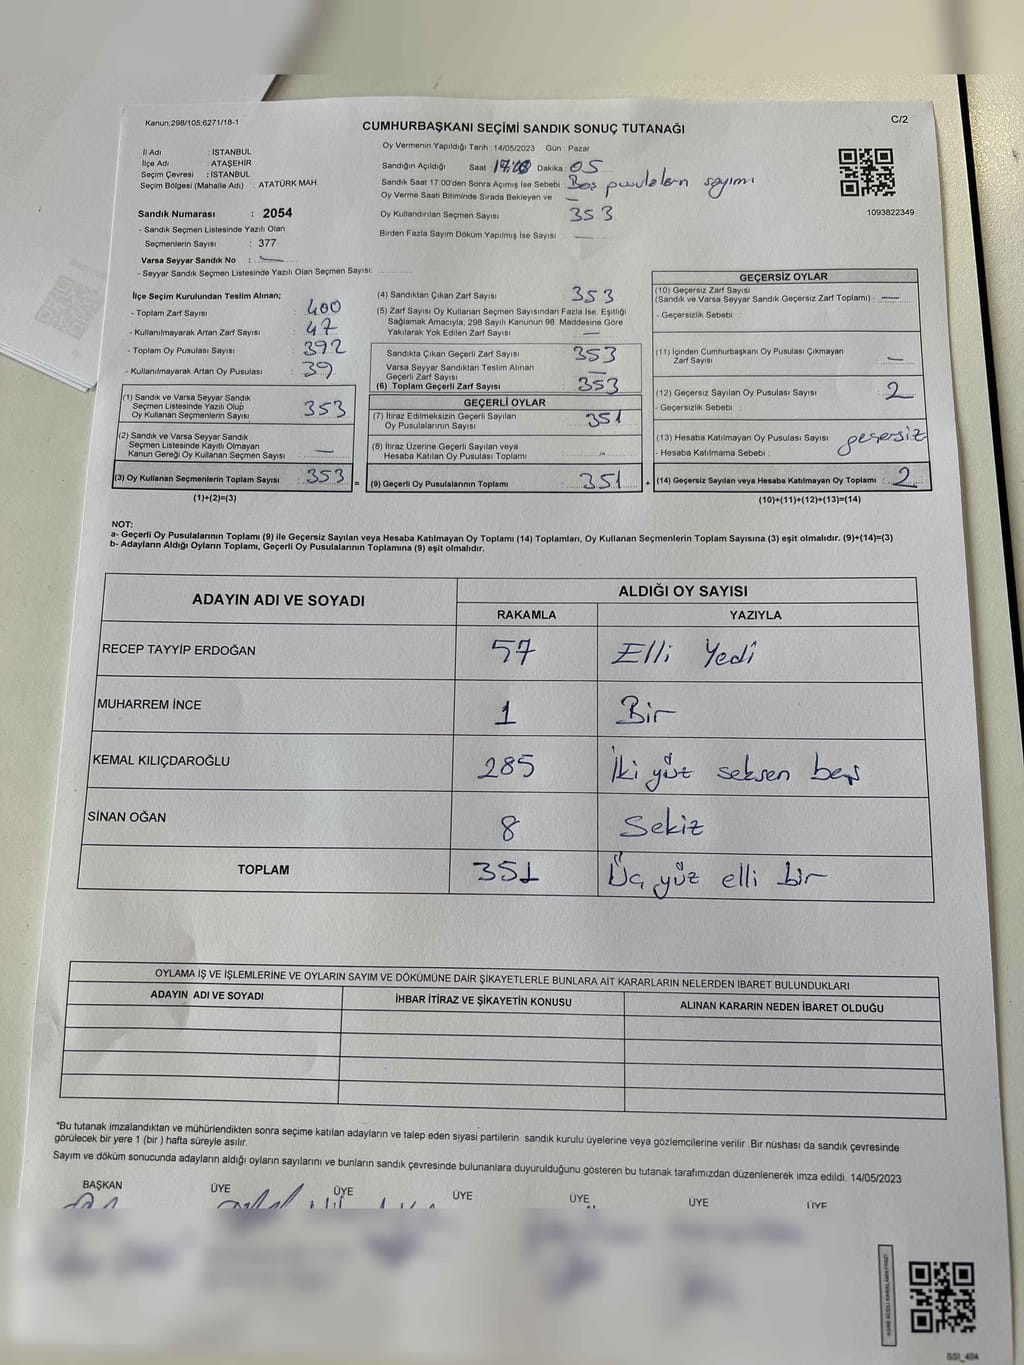 Kanun;298/105;6271/18-1
CUMHURBAŞKANI SEÇİMİ SANDIK SONUÇ TUTANAĞI
C/2
İl Adı : İSTANBUL
İlçe Adı : ATAŞEHİR
Seçim Çevresi : İSTANBUL
Seçim Bölgesi (Mahalle Adı) : ATATÜRK MAH.
Sandık Numarası : 2054
- Sandık Seçmen Listesinde Yazılı Olan
Seçmenlerin Sayısı : 377
Varsa Seyyar Sandık No : —
- Seyyar Sandık Seçmen Listesinde Yazılı Olan Seçmen Sayısı:
Oy Vermenin Yapıldığı Tarih :14/05/2023 Gün : Pazar
Sandığın Açıldığı Saat Dakika : 05
Sandık Saat 17:00'den Sonra Açımış İse Sebebi : Boş pusulaların sayımı
Oy Verme Saati Bitiminde Sırada Bekleyen ve —
Oy Kullandırılan Seçmen Sayısı 353
Birden Fazla Sayım Döküm Yapılmış İse Sayısı —
1093822349
İlçe Seçim Kurulundan Teslim Alınan;
- Toplam Zarf Sayısı : 400
- Kullanılmayarak Artan Zarf Sayısı : 47
- Toplam Oy Pusulası Sayısı : 392
- Kullanılmayarak Artan Oy Pusulası : 39
(1) Sandık ve Varsa Seyyar Sandık
Seçmen Listesinde Yazılı Olup
Oy Kullanan Seçmenlerin Sayısı : 353
(2) Sandık ve Varsa Seyyar Sandık
Seçmen Listesinde Kayıtlı Olmayan
Kanun Gereği Oy Kullanan Seçmen Sayısı : —
(3) Oy Kullanan Seçmenlerin Toplam Sayısı : 353 =
(1)+(2)=(3)
(4) Sandıktan Çıkan Zarf Sayısı 353
(5) Zarf Sayısı Oy Kullanan Seçmen Sayısından Fazla İse, Eşitliği
Sağlamak Amacıyla; 298 Sayılı Kanunun 98. Maddesine Göre
Yakılarak Yok Edilen Zarf Sayısı : —
Sandıkta Çıkan Geçerli Zarf Sayısı 353
Varsa Seyyar Sandıktan Teslim Alınan
Geçerli Zarf Sayısı —
(6) Toplam Geçerli Zarf Sayısı : 353
GEÇERLİ OYLAR
(7) İtiraz Edilmeksizin Geçerli Sayılan
Oy Pusulalarının Sayısı : 351
(8) İtiraz Üzerine Geçerli Sayılan veya
Hesaba Katılan Oy Pusulası Toplamı :
(9) Geçerli Oy Pusulalarının Toplamı : 351 +
GEÇERSİZ OYLAR
(10) Geçersiz Zarf Sayısı
(Sandık ve Varsa Seyyar Sandık Geçersiz Zarf Toplamı) : —
- Geçersizlik Sebebi :
(11) İçinden Cumhurbaşkanı Oy Pusulası Çıkmayan
Zarf Sayısı : —
(12) Geçersiz Sayılan Oy Pusulası Sayısı : 2
- Geçersizlik Sebebi :
(13) Hesaba Katılmayan Oy Pusulası Sayısı : geçersiz
- Hesaba Katılmama Sebebi :
(14) Geçersiz Sayılan veya Hesaba Katılmayan Oy Toplamı : 2
(10)+(11)+(12)+(13)=(14)
NOT:
a- Geçerli Oy Pusulalarının Toplamı (9) ile Geçersiz Sayılan veya Hesaba Katılmayan Oy Toplamı (14) Toplamları, Oy Kullanan Seçmenlerin Toplam Sayısına (3) eşit olmalıdır. (9)+(14)=(3)
b- Adayların Aldığı Oyların Toplamı, Geçerli Oy Pusulalarının Toplamına (9) eşit olmalıdır.
ADAYIN ADI VE SOYADI ALDIĞI OY SAYISI
RAKAMLA YAZIYLA
RECEP TAYYİP ERDOĞAN 57 Elli Yedi
MUHARREM İNCE 1 Bir
KEMAL KILIÇDAROĞLU 285 İki yüz seksen beş
SİNAN OĞAN 8 Sekiz
TOPLAM 351 Üç yüz elli bir
OYLAMA İŞ VE İŞLEMLERİNE VE OYLARIN SAYIM VE DÖKÜMÜNE DAİR ŞİKAYETLERLE BUNLARA AİT KARARLARIN NELERDEN İBARET BULUNDUKLARI
ADAYIN ADI VE SOYADI İHBAR İTİRAZ VE ŞİKAYETİN KONUSU ALINAN KARARIN NEDEN İBARET OLDUĞU
*Bu tutanak imzalandıktan ve mühürlendikten sonra seçime katılan adayların ve talep eden siyasi partilerin sandık kurulu üyelerine veya gözlemcilerine verilir. Bir nüshası da sandık çevresinde
görülecek bir yere 1 (bir ) hafta süreyle asılır.
Sayım ve döküm sonucunda adayların aldığı oyların sayılarını ve bunların sandık çevresinde bulunanlara duyurulduğunu gösteren bu tutanak tarafımızdan düzenlenerek imza edildi. 14/05/2023
BAŞKAN ÜYE ÜYE ÜYE ÜYE ÜYE ÜYE